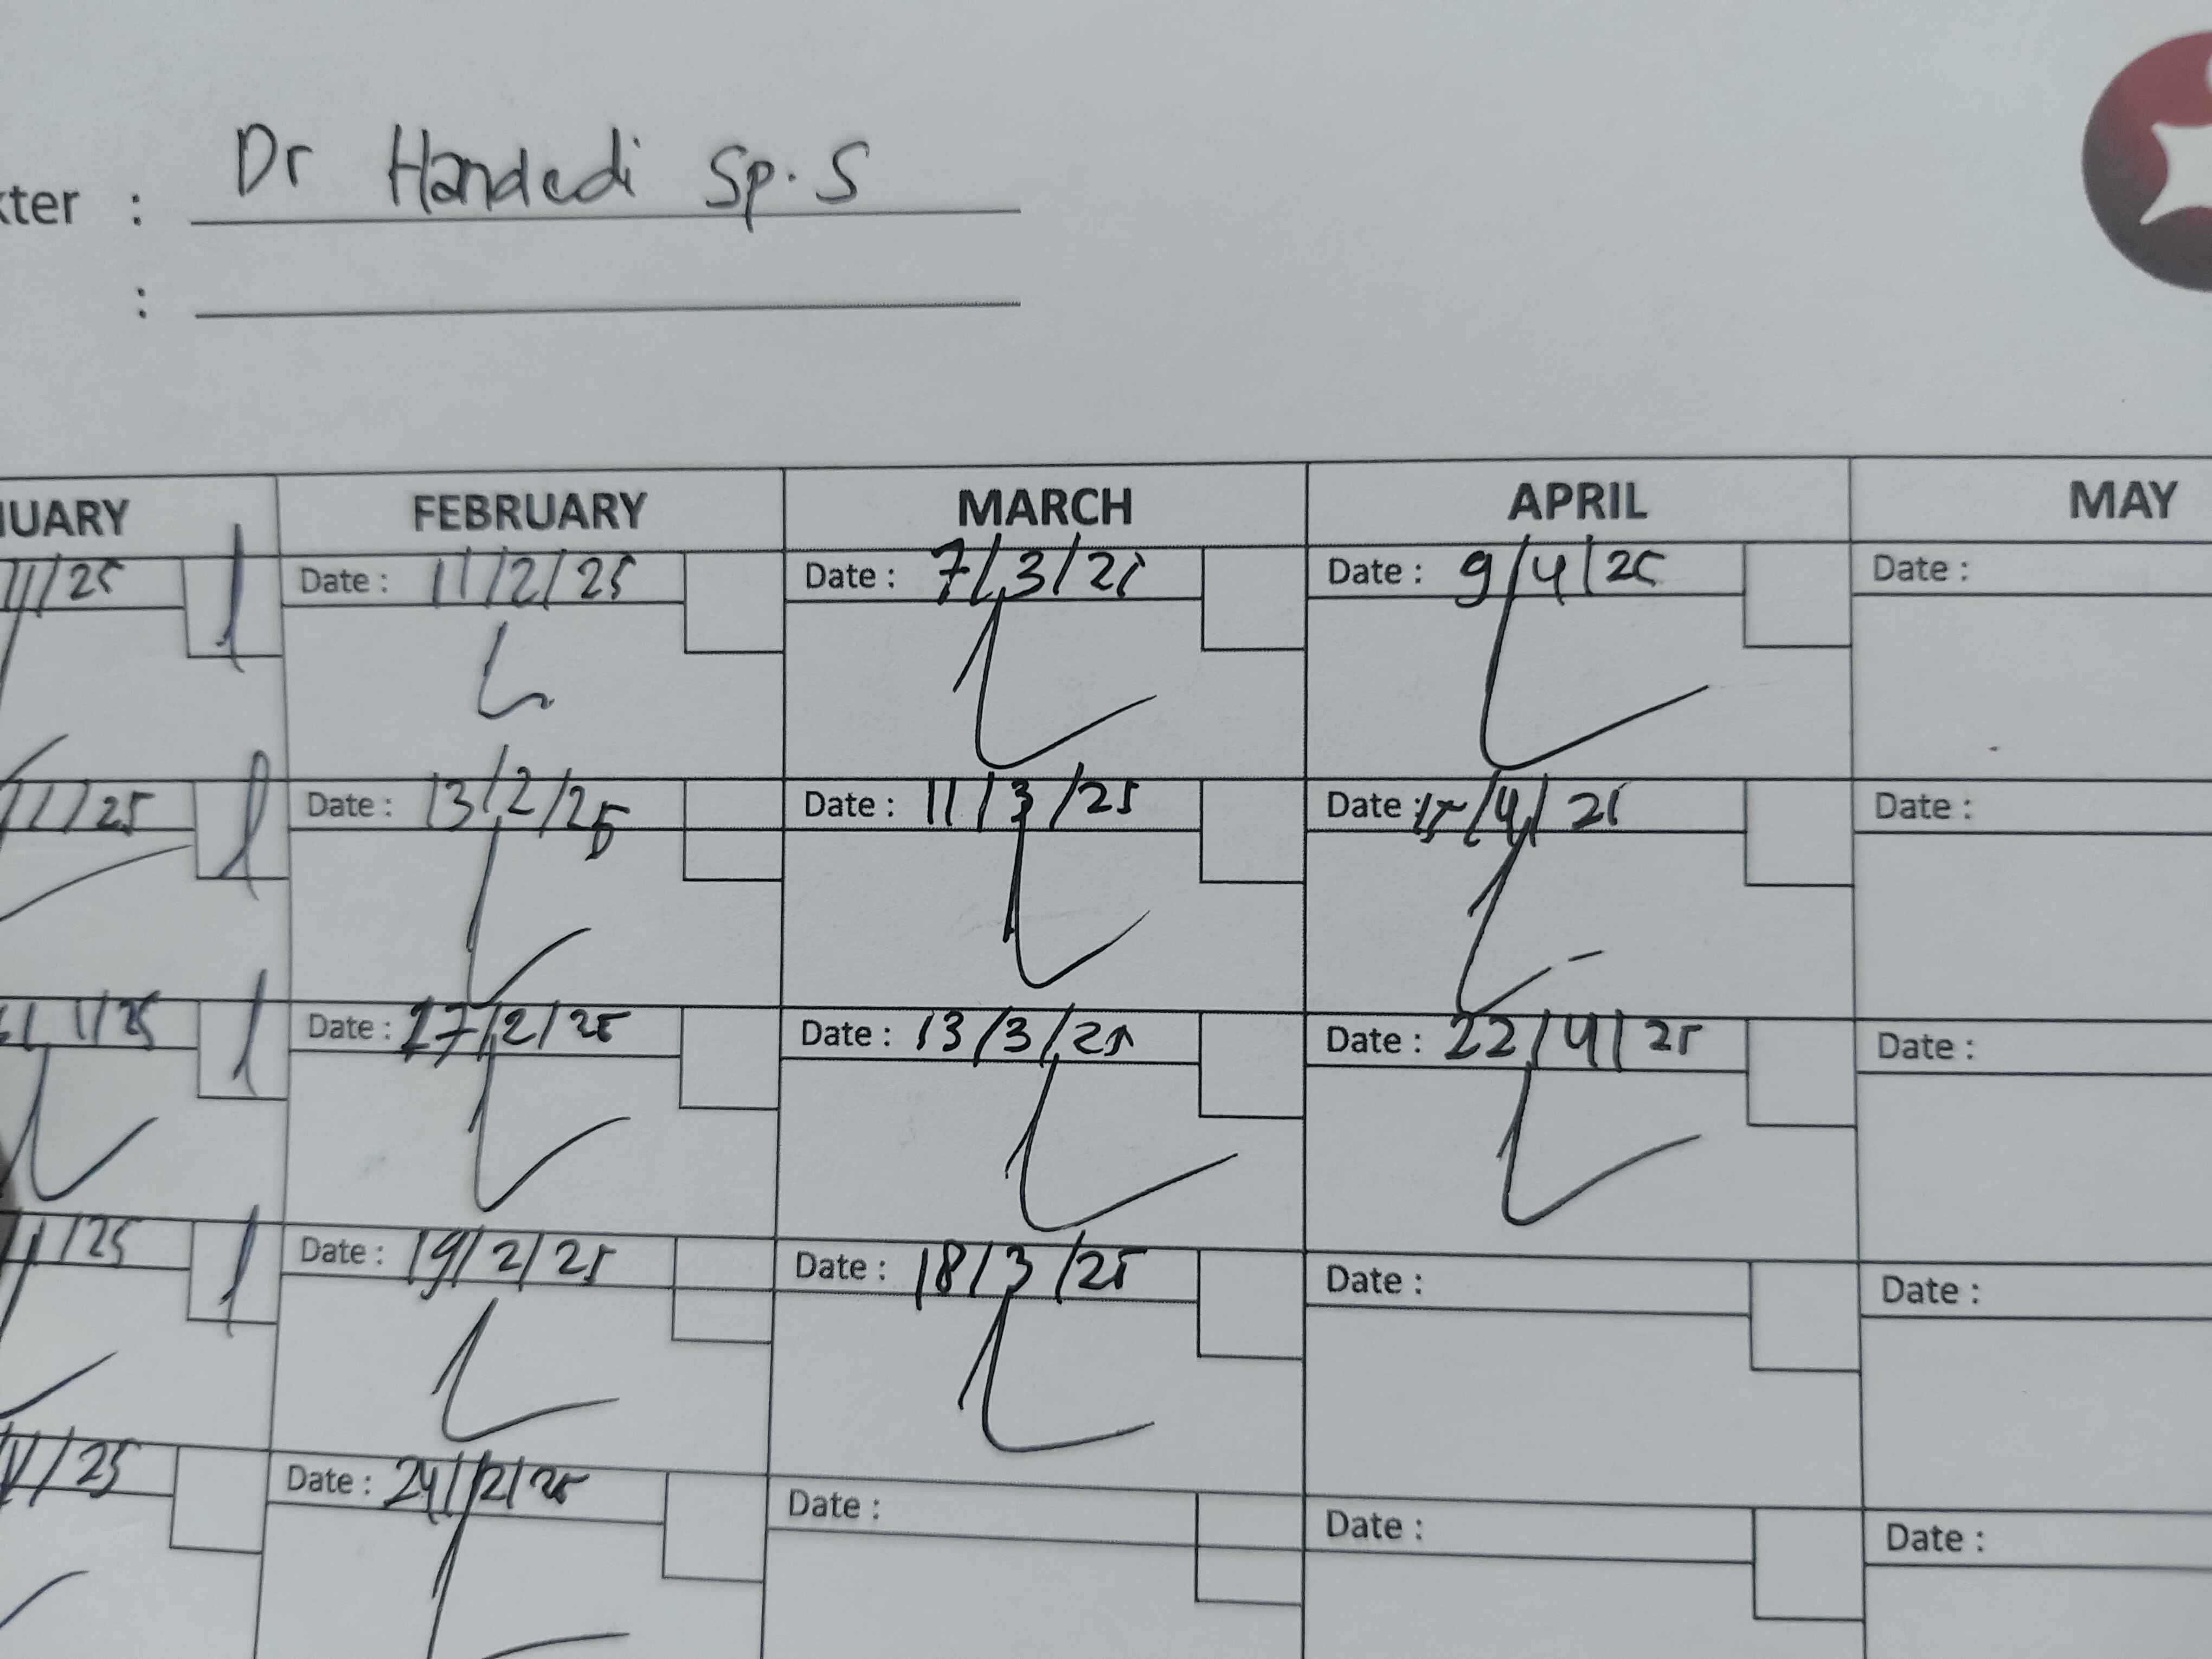 kter : Dr Handedi Sp.S
:
NUARY FEBRUARY MARCH APRIL MAY
/1/25 Date : 11/2/25 Date : 7/3/25 Date : 9/4/25 Date :
/1/25 Date : 13/2/25 Date : 11/3/25 Date : 15/4/25 Date :
1/25 Date : 17/2/25 Date : 13/3/25 Date : 22/4/25 Date :
/1/25 Date : 19/2/25 Date : 18/3/25 Date : Date :
/1/25 Date : 24/2/25 Date : Date : Date :